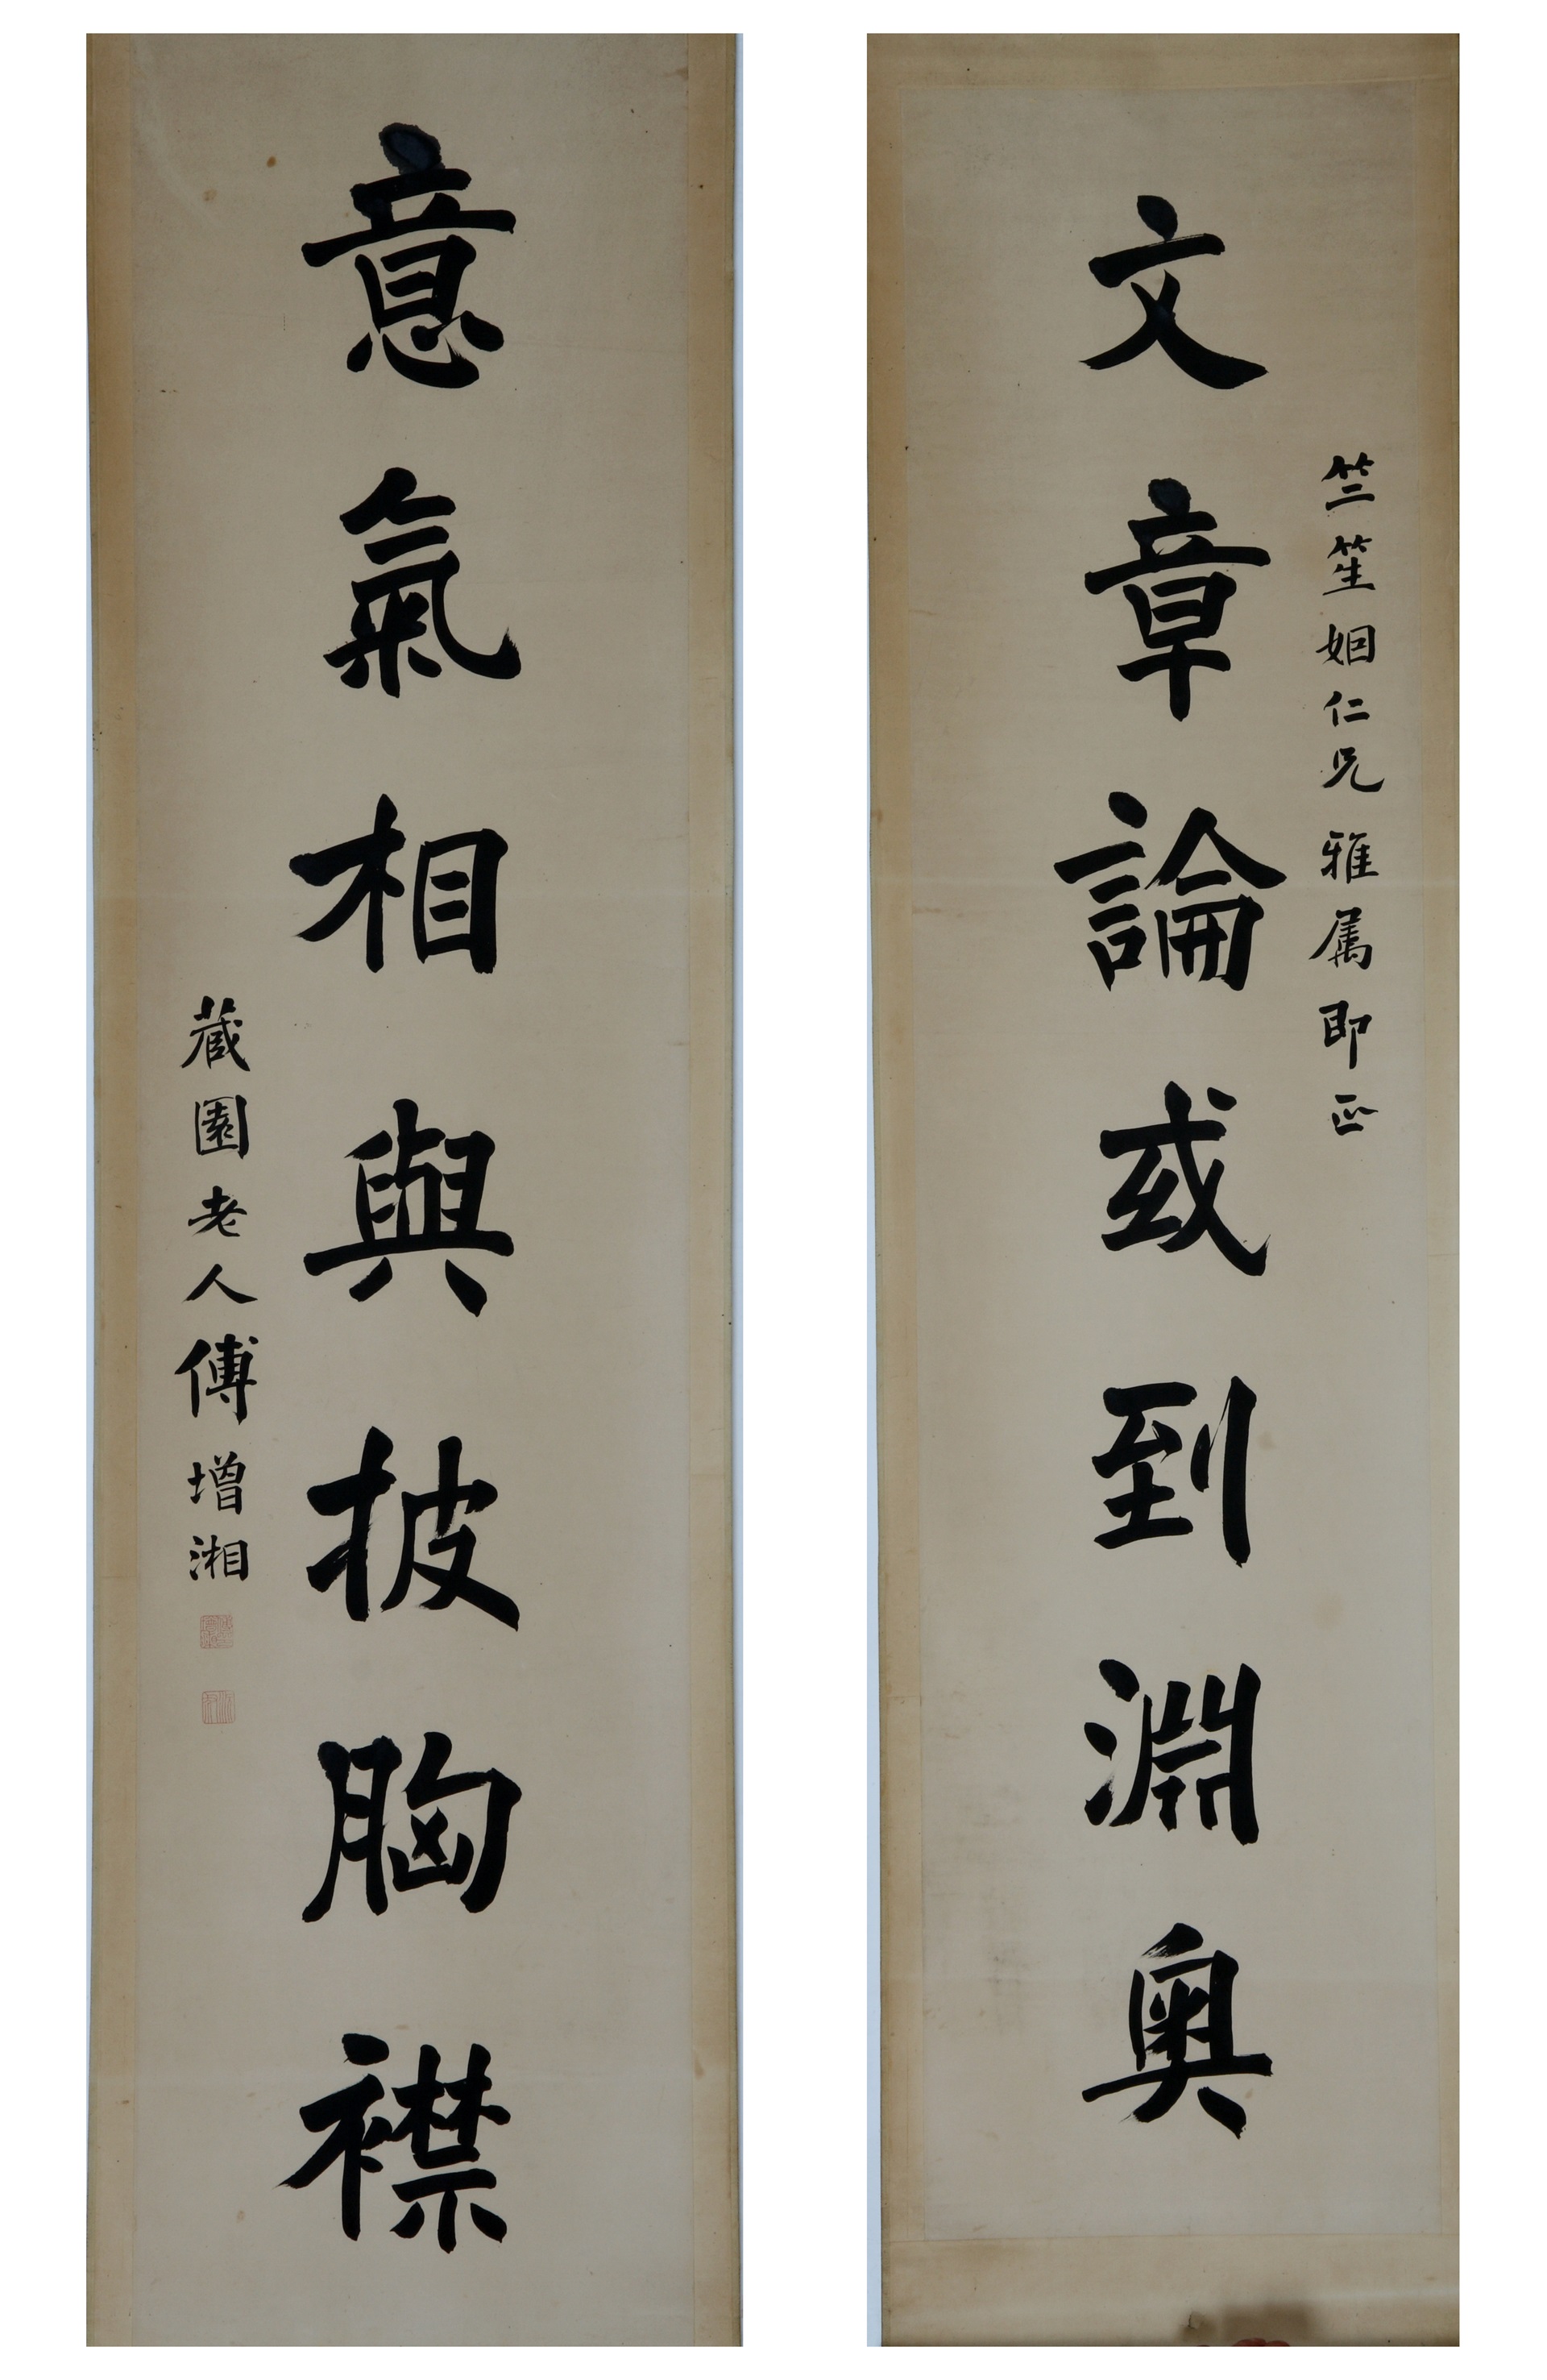 竺笙姻仁兄雅属即正
文章論或到淵奥
意氣相與披胸襟
藏園老人傅增湘